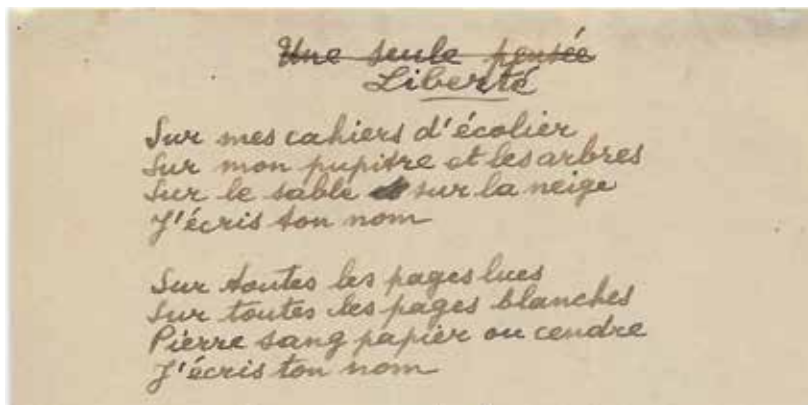 Une seule pensée
Liberté
Sur mes cahiers d'écolier
Sur mon pupitre et les arbres
Sur le sable sur la neige
J'écris ton nom
Sur toutes les pages lues
Sur toutes les pages blanches
Pierre sang papier ou cendre
J'écris ton nom